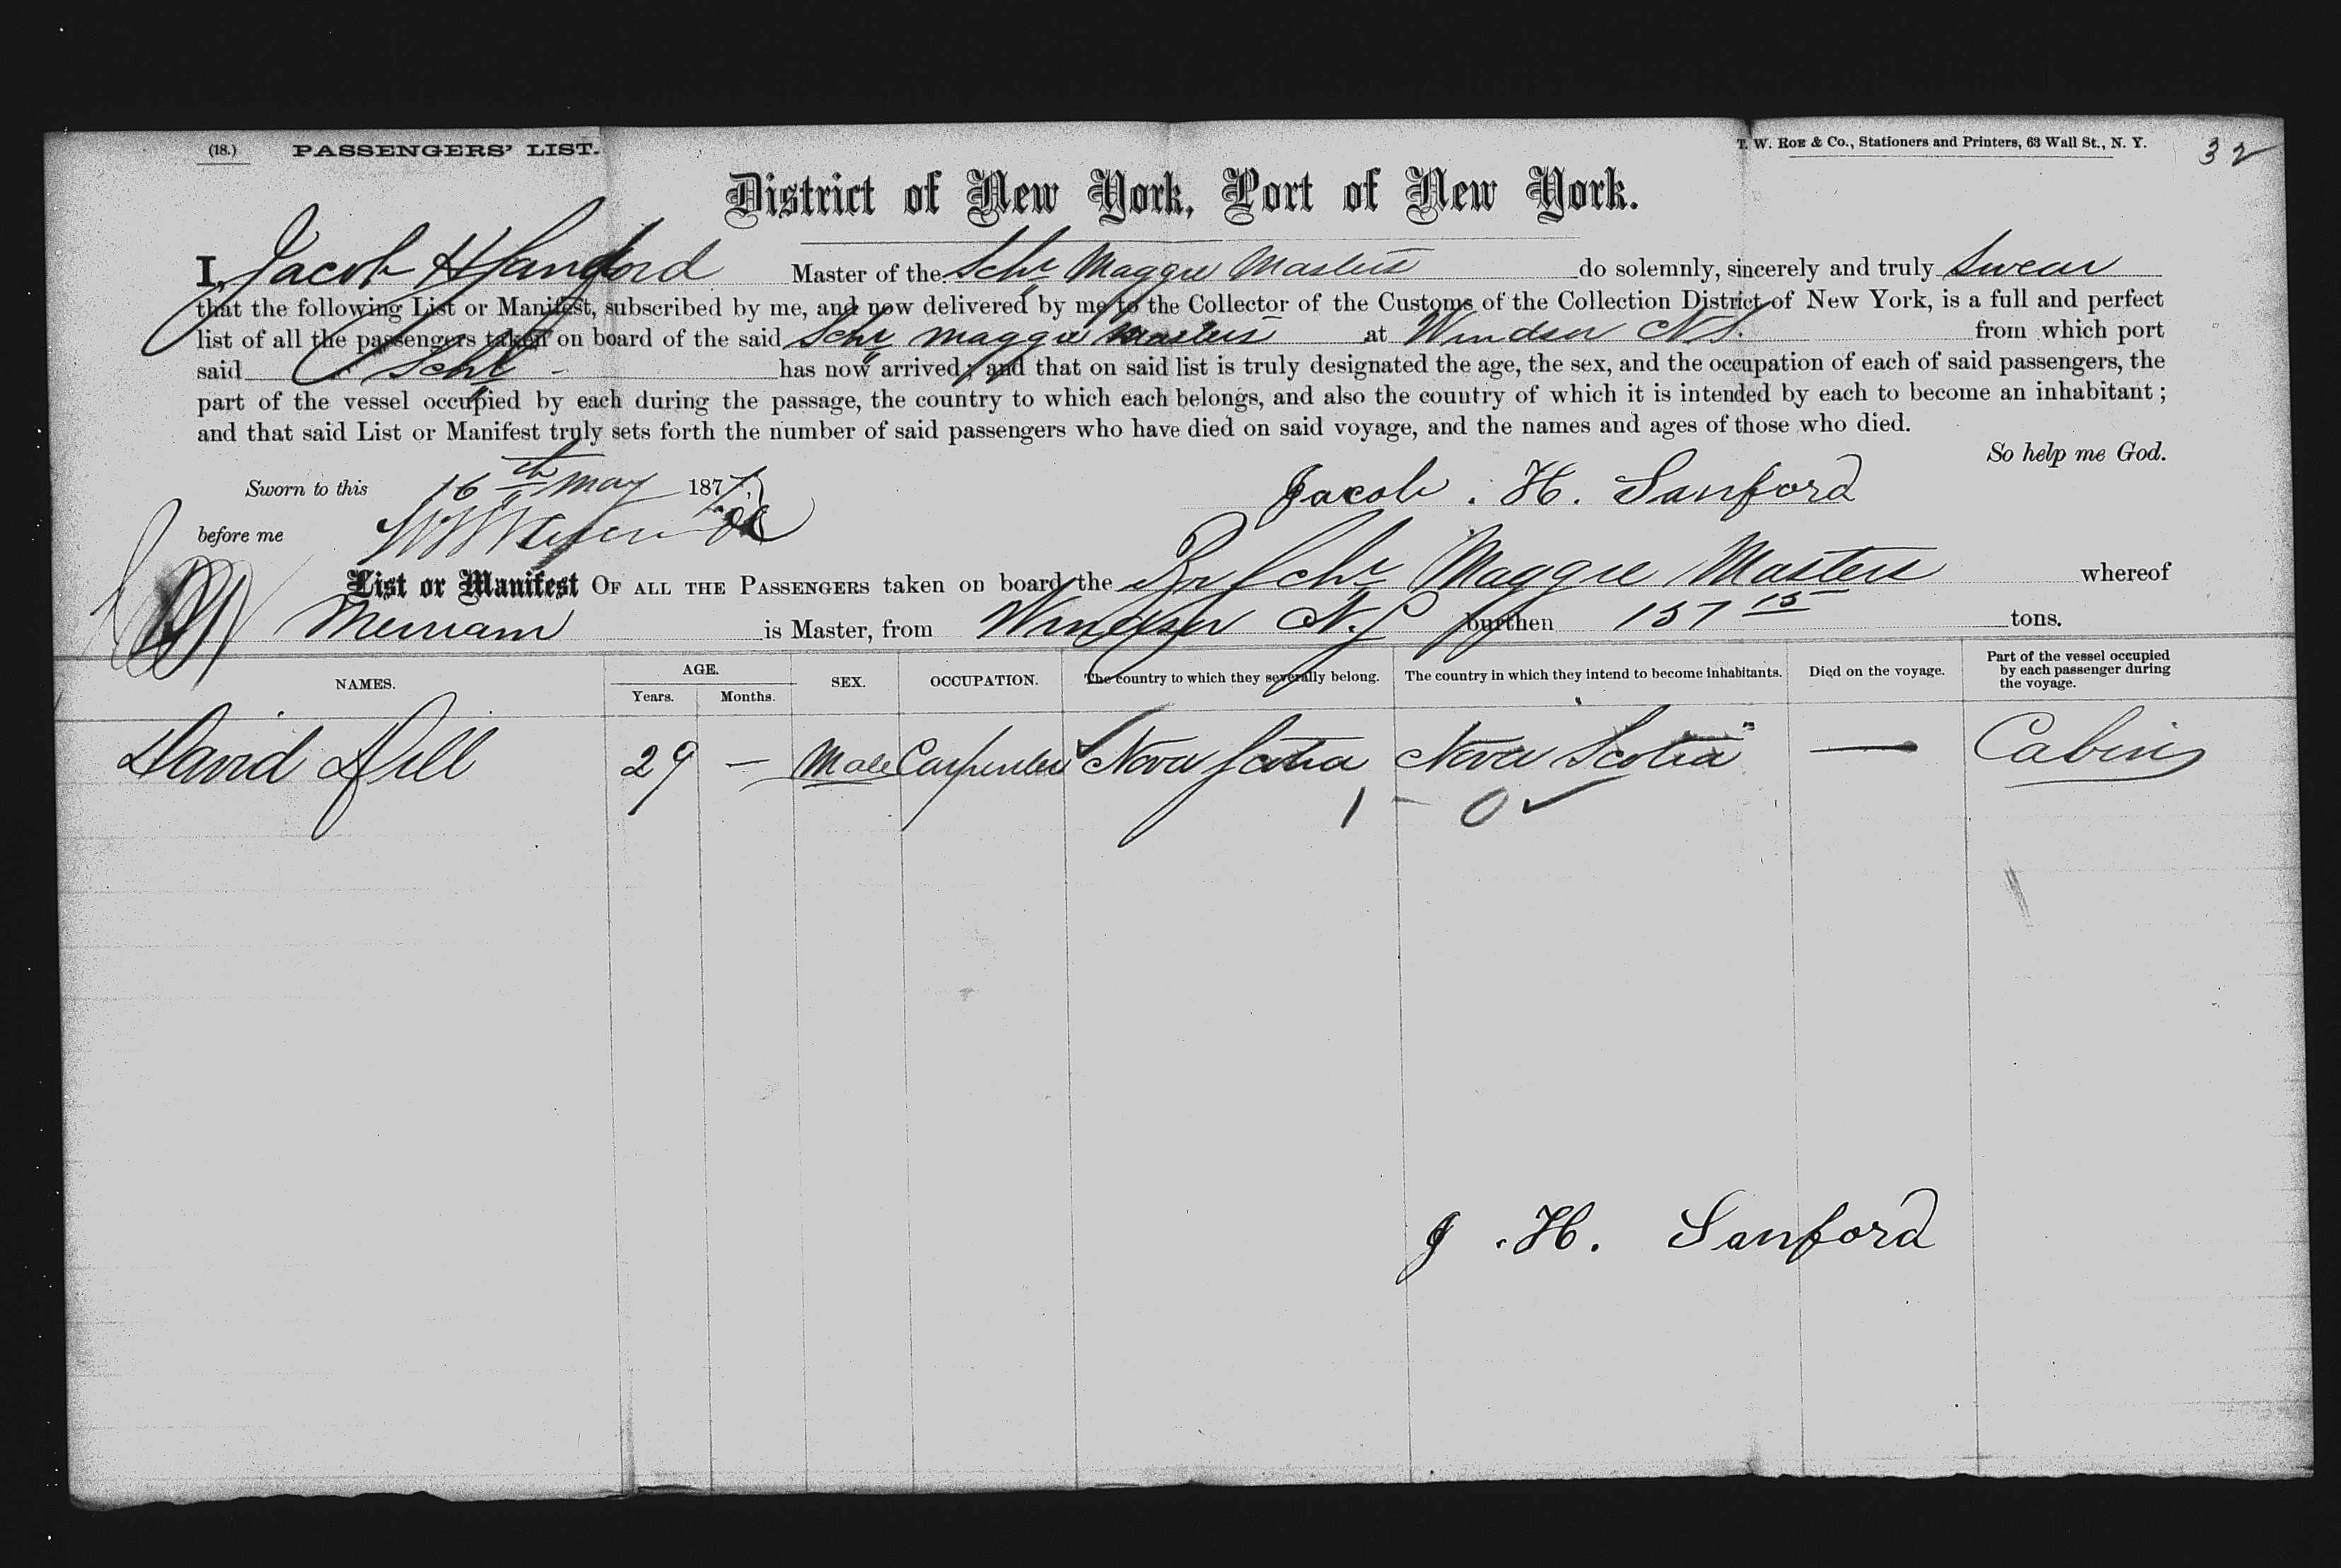 (18.) PASSENGERS' LIST. T. W. ROE & Co., Stationers and Printers, 63 Wall St., N. Y. 32
District of New York, Port of New York.
I, Jacob H Sanford Master of the Schr Maggie Masters do solemnly, sincerely and truly swear
that the following List or Manifest, subscribed by me, and now delivered by me to the Collector of the Customs of the Collection District of New York, is a full and perfect
list of all the passengers taken on board of the said Schr Maggie Masters at Windsor N S. from which port
said Schr has now arrived; and that on said list is truly designated the age, the sex, and the occupation of each of said passengers, the
part of the vessel occupied by each during the passage, the country to which each belongs, and also the country of which it is intended by each to become an inhabitant;
and that said List or Manifest truly sets forth the number of said passengers who have died on said voyage, and the names and ages of those who died.
So help me God.
Sworn to this 16th May 1877, Jacob. H. Sanford
before me
List or Manifest OF ALL THE PASSENGERS taken on board the Br Schr Maggie Masters whereof
Merriam is Master, from Windsor N. S burthen 157 15 tons.
NAMES. AGE. Years. Months. SEX. OCCUPATION. The country to which they severally belong. The country in which they intend to become inhabitants. Died on the voyage. Part of the vessel occupied by each passenger during the voyage.
David Dill 29 — Male Carpenter Nova Scotia Nova Scotia — Cabin
1 - 0 ✓
J. H. Sanford